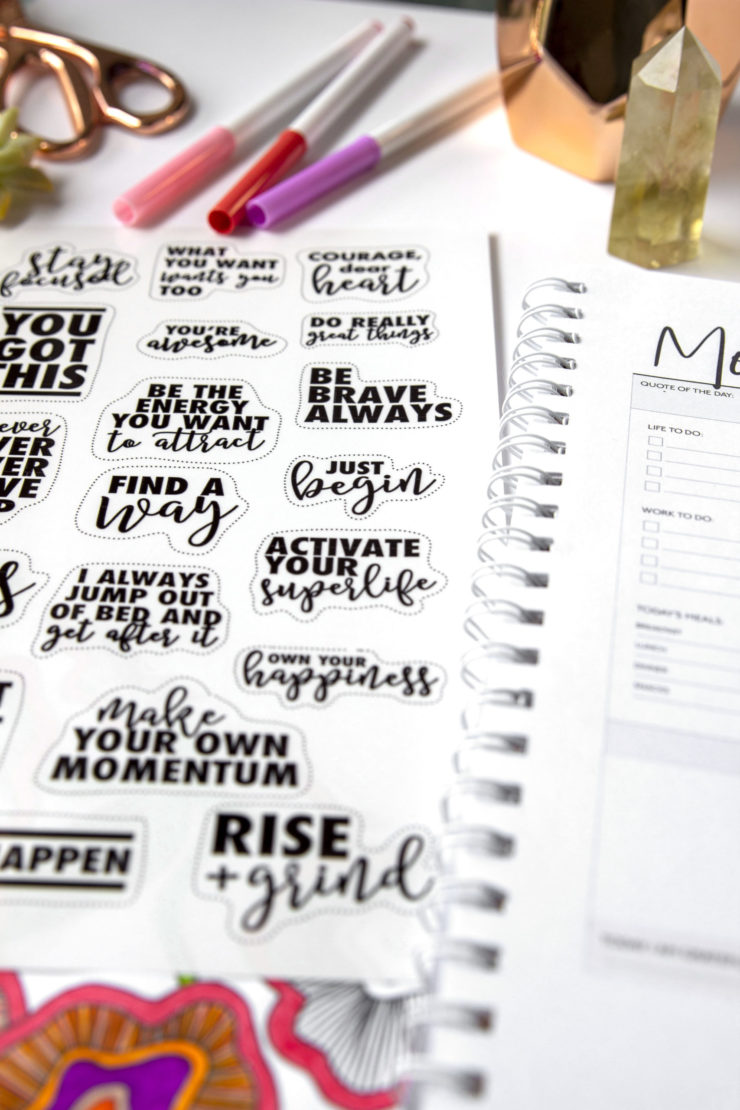 stay
focused
WHAT
YOU WANT
wants you
TOO
COURAGE,
dear
heart
YOU
GOT
THIS
YOU'RE
awesome
DO REALLY
great things
BE THE
ENERGY
YOU WANT
to attract
BE
BRAVE
ALWAYS
ever
VER
VER
VE
P
FIND A
way
JUST
begin
ACTIVATE
YOUR
superlife
s
I ALWAYS
JUMP OUT
OF BED AND
get after it
OWN YOUR
happiness
T
make
YOUR OWN
MOMENTUM
APPEN
RISE
+grind
Mo
QUOTE OF THE DAY:
LIFE TO DO:
WORK TO DO:
TODAY'S MEALS:
BREAKFAST
LUNCH
DINNER